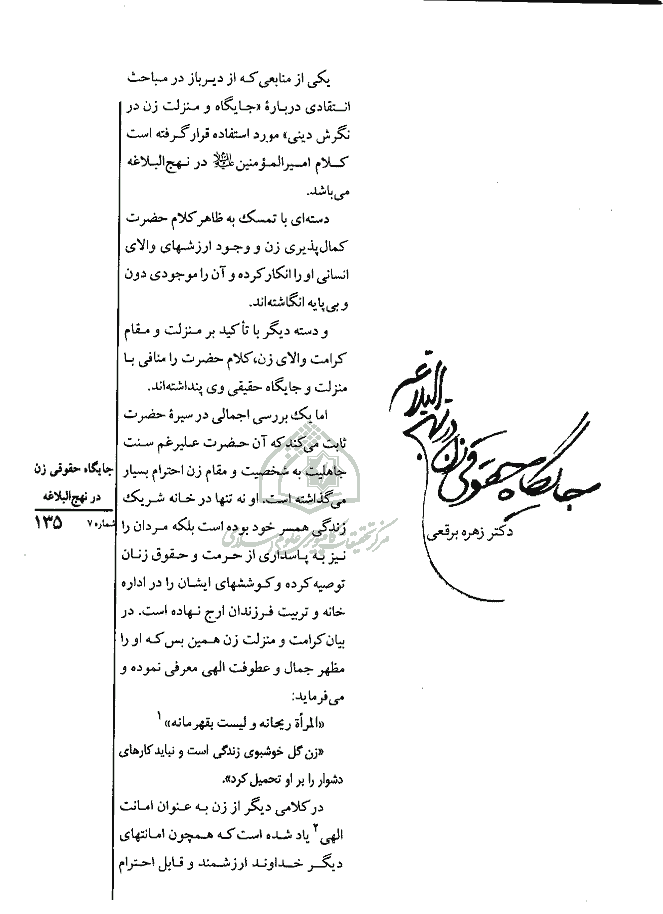 جایگاه حقوقی زن در نهج البلاغه
دکتر زهره برقعی
یکی از منابعی که از دیرباز در مباحث
انتقادی دربارهٔ «جایگاه و منزلت زن در
نگرش دینی» مورد استفاده قرار گرفته است
کلام امیرالمؤمنین علیه‌السلام در نهج‌البلاغه
می‌باشد.
دسته‌ای با تمسک به ظاهر کلام حضرت
کمال‌پذیری زن و وجود ارزشهای والای
انسانی او را انکار کرده و آن را موجودی دون
و بی‌پایه انگاشته‌اند.
و دسته دیگر با تأکید بر منزلت و مقام
کرامت والای زن، کلام حضرت را منافی با
منزلت و جایگاه حقیقی وی پنداشته‌اند.
اما یک بررسی اجمالی در سیرهٔ حضرت
ثابت می‌کند که آن حضرت علیرغم سنت
جاهلیت به شخصیت و مقام زن احترام بسیار
می‌گذاشته است. او نه تنها در خانه شریک
زندگی همسر خود بوده است بلکه مردان را
نیز به پاسداری از حرمت و حقوق زنان
توصیه کرده و کوششهای ایشان را در اداره
خانه و تربیت فرزندان ارج نهاده است. در
بیان کرامت و منزلت زن همین بس که او را
مظهر جمال و عطوفت الهی معرفی نموده و
می‌فرماید:
«المرأة ریحانه و لیست بقهرمانه» ۱
«زن گل خوشبوی زندگی است و نباید کارهای
دشوار را بر او تحمیل کرد».
در کلامی دیگر از زن به عنوان امانت
الهی ۲ یاد شده است که همچون امانتهای
دیگر خداوند ارزشمند و قابل احترام
جایگاه حقوقی زن
در نهج‌البلاغه
شماره ۷ ۱۳۵
مرکز تحقیقات کامپیوتری علوم اسلامی